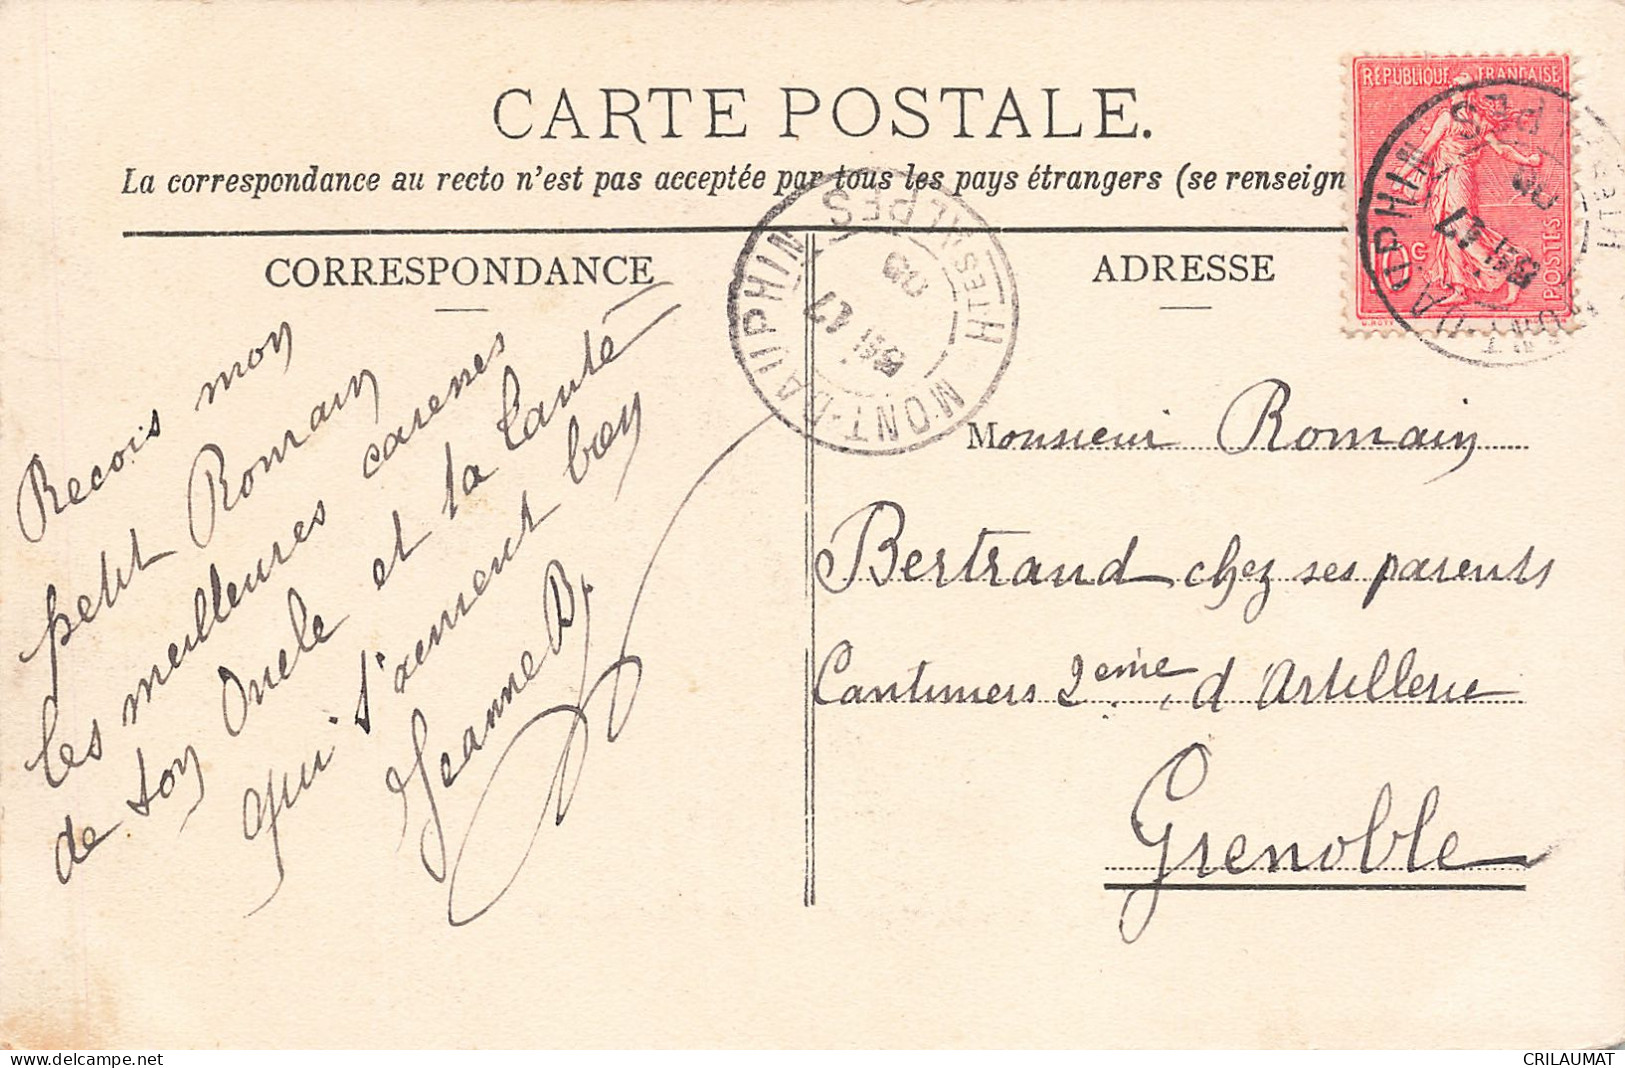 CARTE POSTALE.
La correspondance au recto n'est pas acceptée par tous les pays étrangers (se renseign
CORRESPONDANCE
ADRESSE
REPUBLIQUE FRANÇAISE
10c
POSTES
MONT-DAUPHIN
HTES ALPES
17
09
MONT-DAUPHIN
17
09
Recois mon
petit Romain
les meilleures caresses
de ton Oncle et ta tante
qui t'aiment bien
Jeanne B.
Monsieur Romain
Bertrand chez ses parents
Cantiniers 2eme d'Artillerie
Grenoble
delcampe.net
CRILAUMAT